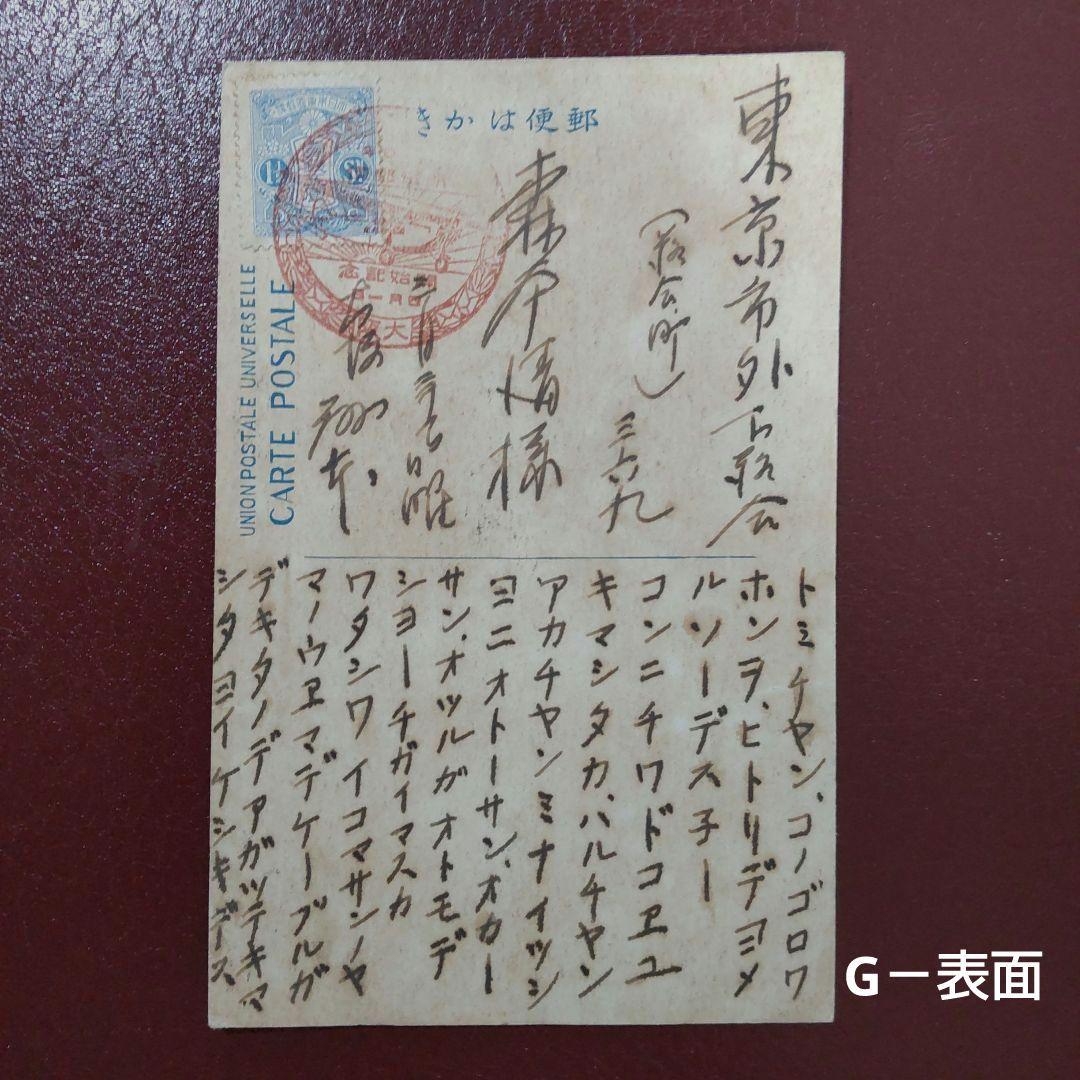 郵便はかき
東京市外下落合
(落合町)
三六九
森本 情様
三月三十日 
大阪
開始記念
四月一日
大
UNION POSTALE UNIVERSELLE
CARTE POSTALE
トミチヤン、コノゴロワ
ホンヲ、ヒトリデヨメ
ルソーデス子ー
コンニチワドコエユ
キマシタカ、ハルチヤン
アカチヤンミナイツシ
ヨニオトーサン、オカー
サン、オツルガオトモデ
シヨーチガイマスカ
ワタシワイコマサンノヤ
マノウヱマデケーブルガ
デキタノデアガツテキマ
シタヨイケシキデス
G－表面